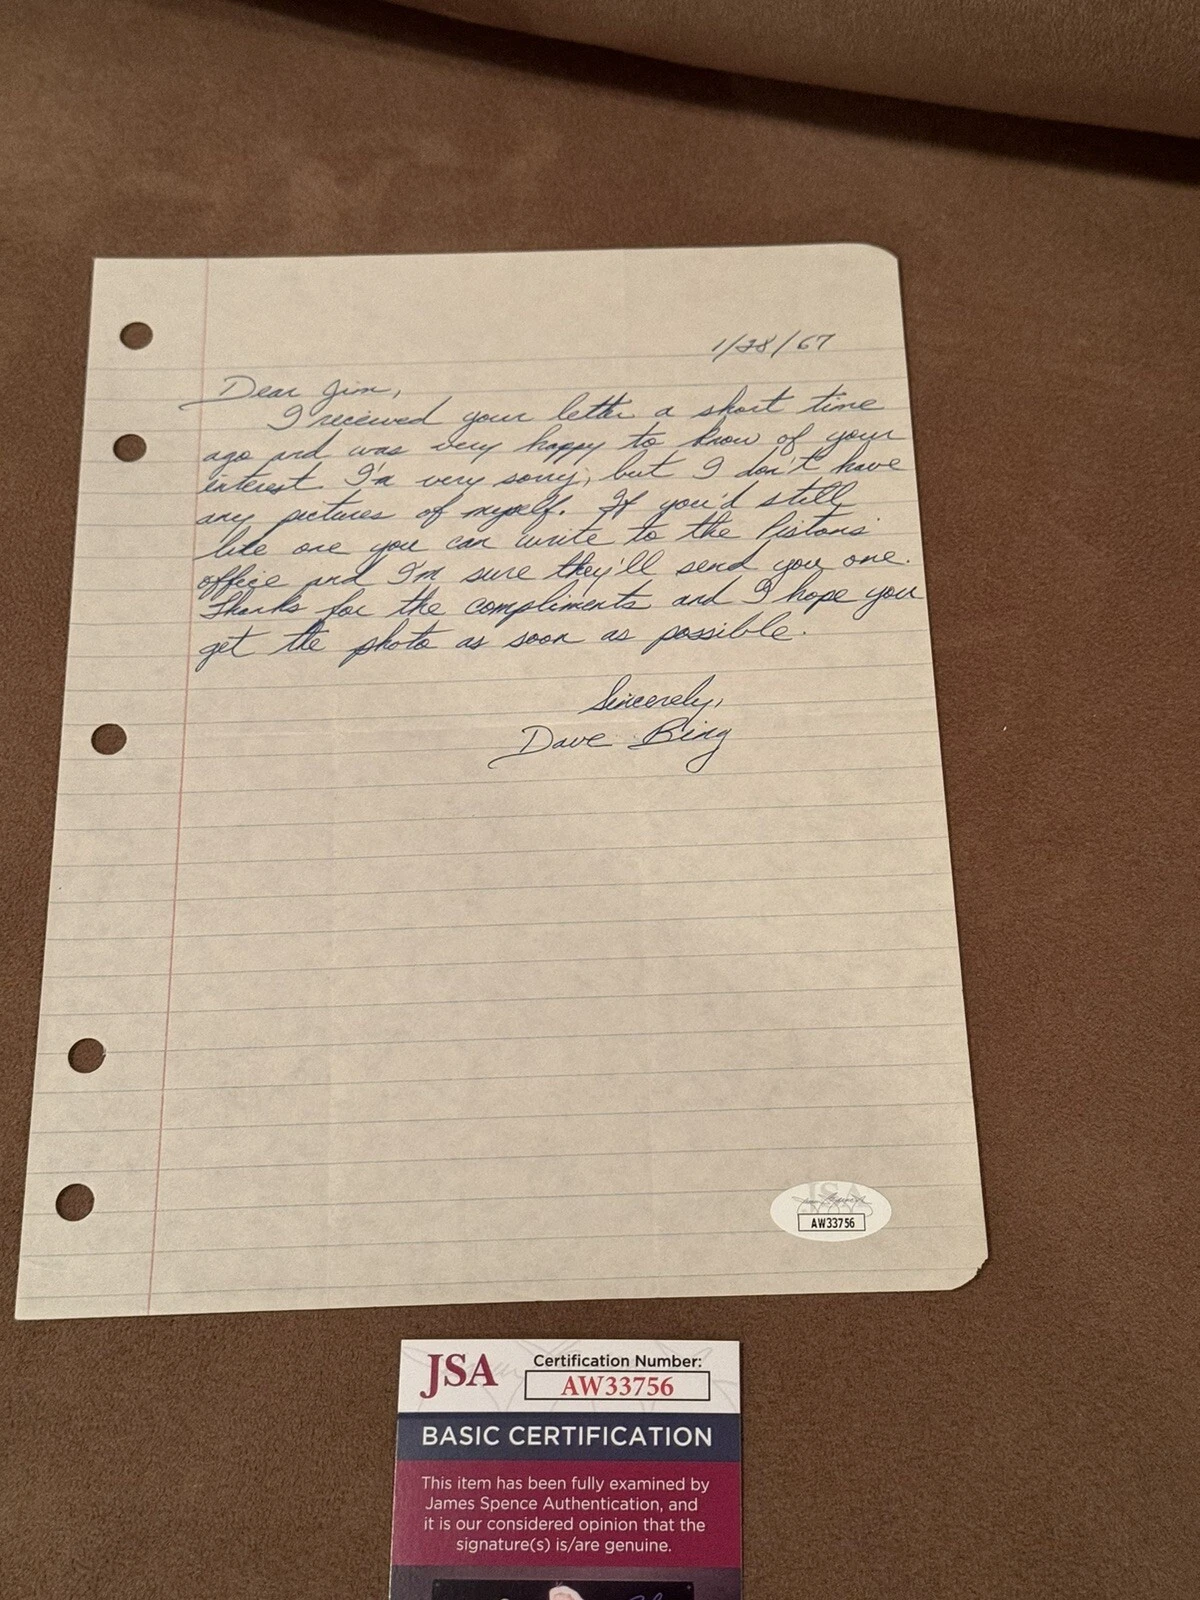 1/28/67
Dear Jim,
I received your letter a short time
ago and was very happy to know of your
interest. I'm very sorry, but I don't have
any pictures of myself. If you'd still
like one you can write to the Pistons'
office and I'm sure they'll send you one.
Thanks for the compliments and I hope you
get the photo as soon as possible.
Sincerely,
Dave Bing
JSA
AW33756
JSA
Certification Number:
AW33756
BASIC CERTIFICATION
This item has been fully examined by
James Spence Authentication, and
it is our considered opinion that the
signature(s) is/are genuine.